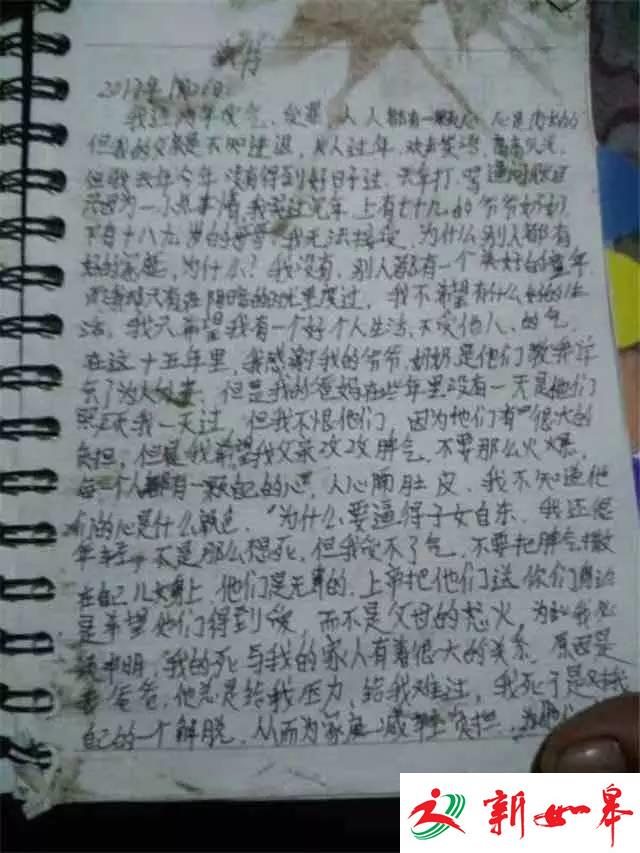 2017年1月26日
我这两年受气、受罪,人人都有一颗心,心是肉长的
但我的父亲是不知进退,别人过年,欢声笑语,高高兴兴,
但我去年今年没有得到好日子过,天天打,骂
只因为一小点事情,我没过完年,上有七十九的爷爷奶奶
下有十八九岁的哥哥,我无法接受,为什么别人都有
好的家庭,为什么?我没有,别人都有一个美好的童年
我只有在阴暗的度过,我不希望有什么好的生
活,我只希望我有一个好个人生活,不受他人的气,
在这十五年里,我感谢我的爷爷,奶奶是他们教我学
会了为人处事,但是我的爸妈在些年里没有一天是他们
照顾我一天过,但我不恨他们,因为他们有很大的
负担,但是我希望我父亲改改脾气,不要那么火爆,
每一个人都有一颗自己的心,人心隔肚皮,我不知道他
们的心是什么颜色,为什么要逼得子女自杀,我还很
年轻,不是那么想死,但我受不了气,不要把脾气撒
在自己儿女身上,他们是无辜的,上帝把他们送你们身边
是希望他们得到爱,而不是父母的怒火,为此我
申明,我的死与我的家人有着很大的关系,原因是
我爸爸,他总是给我压力,给我难过,我死于是对我
自己的一个解脱,从而为家庭减轻负担,
新如皋